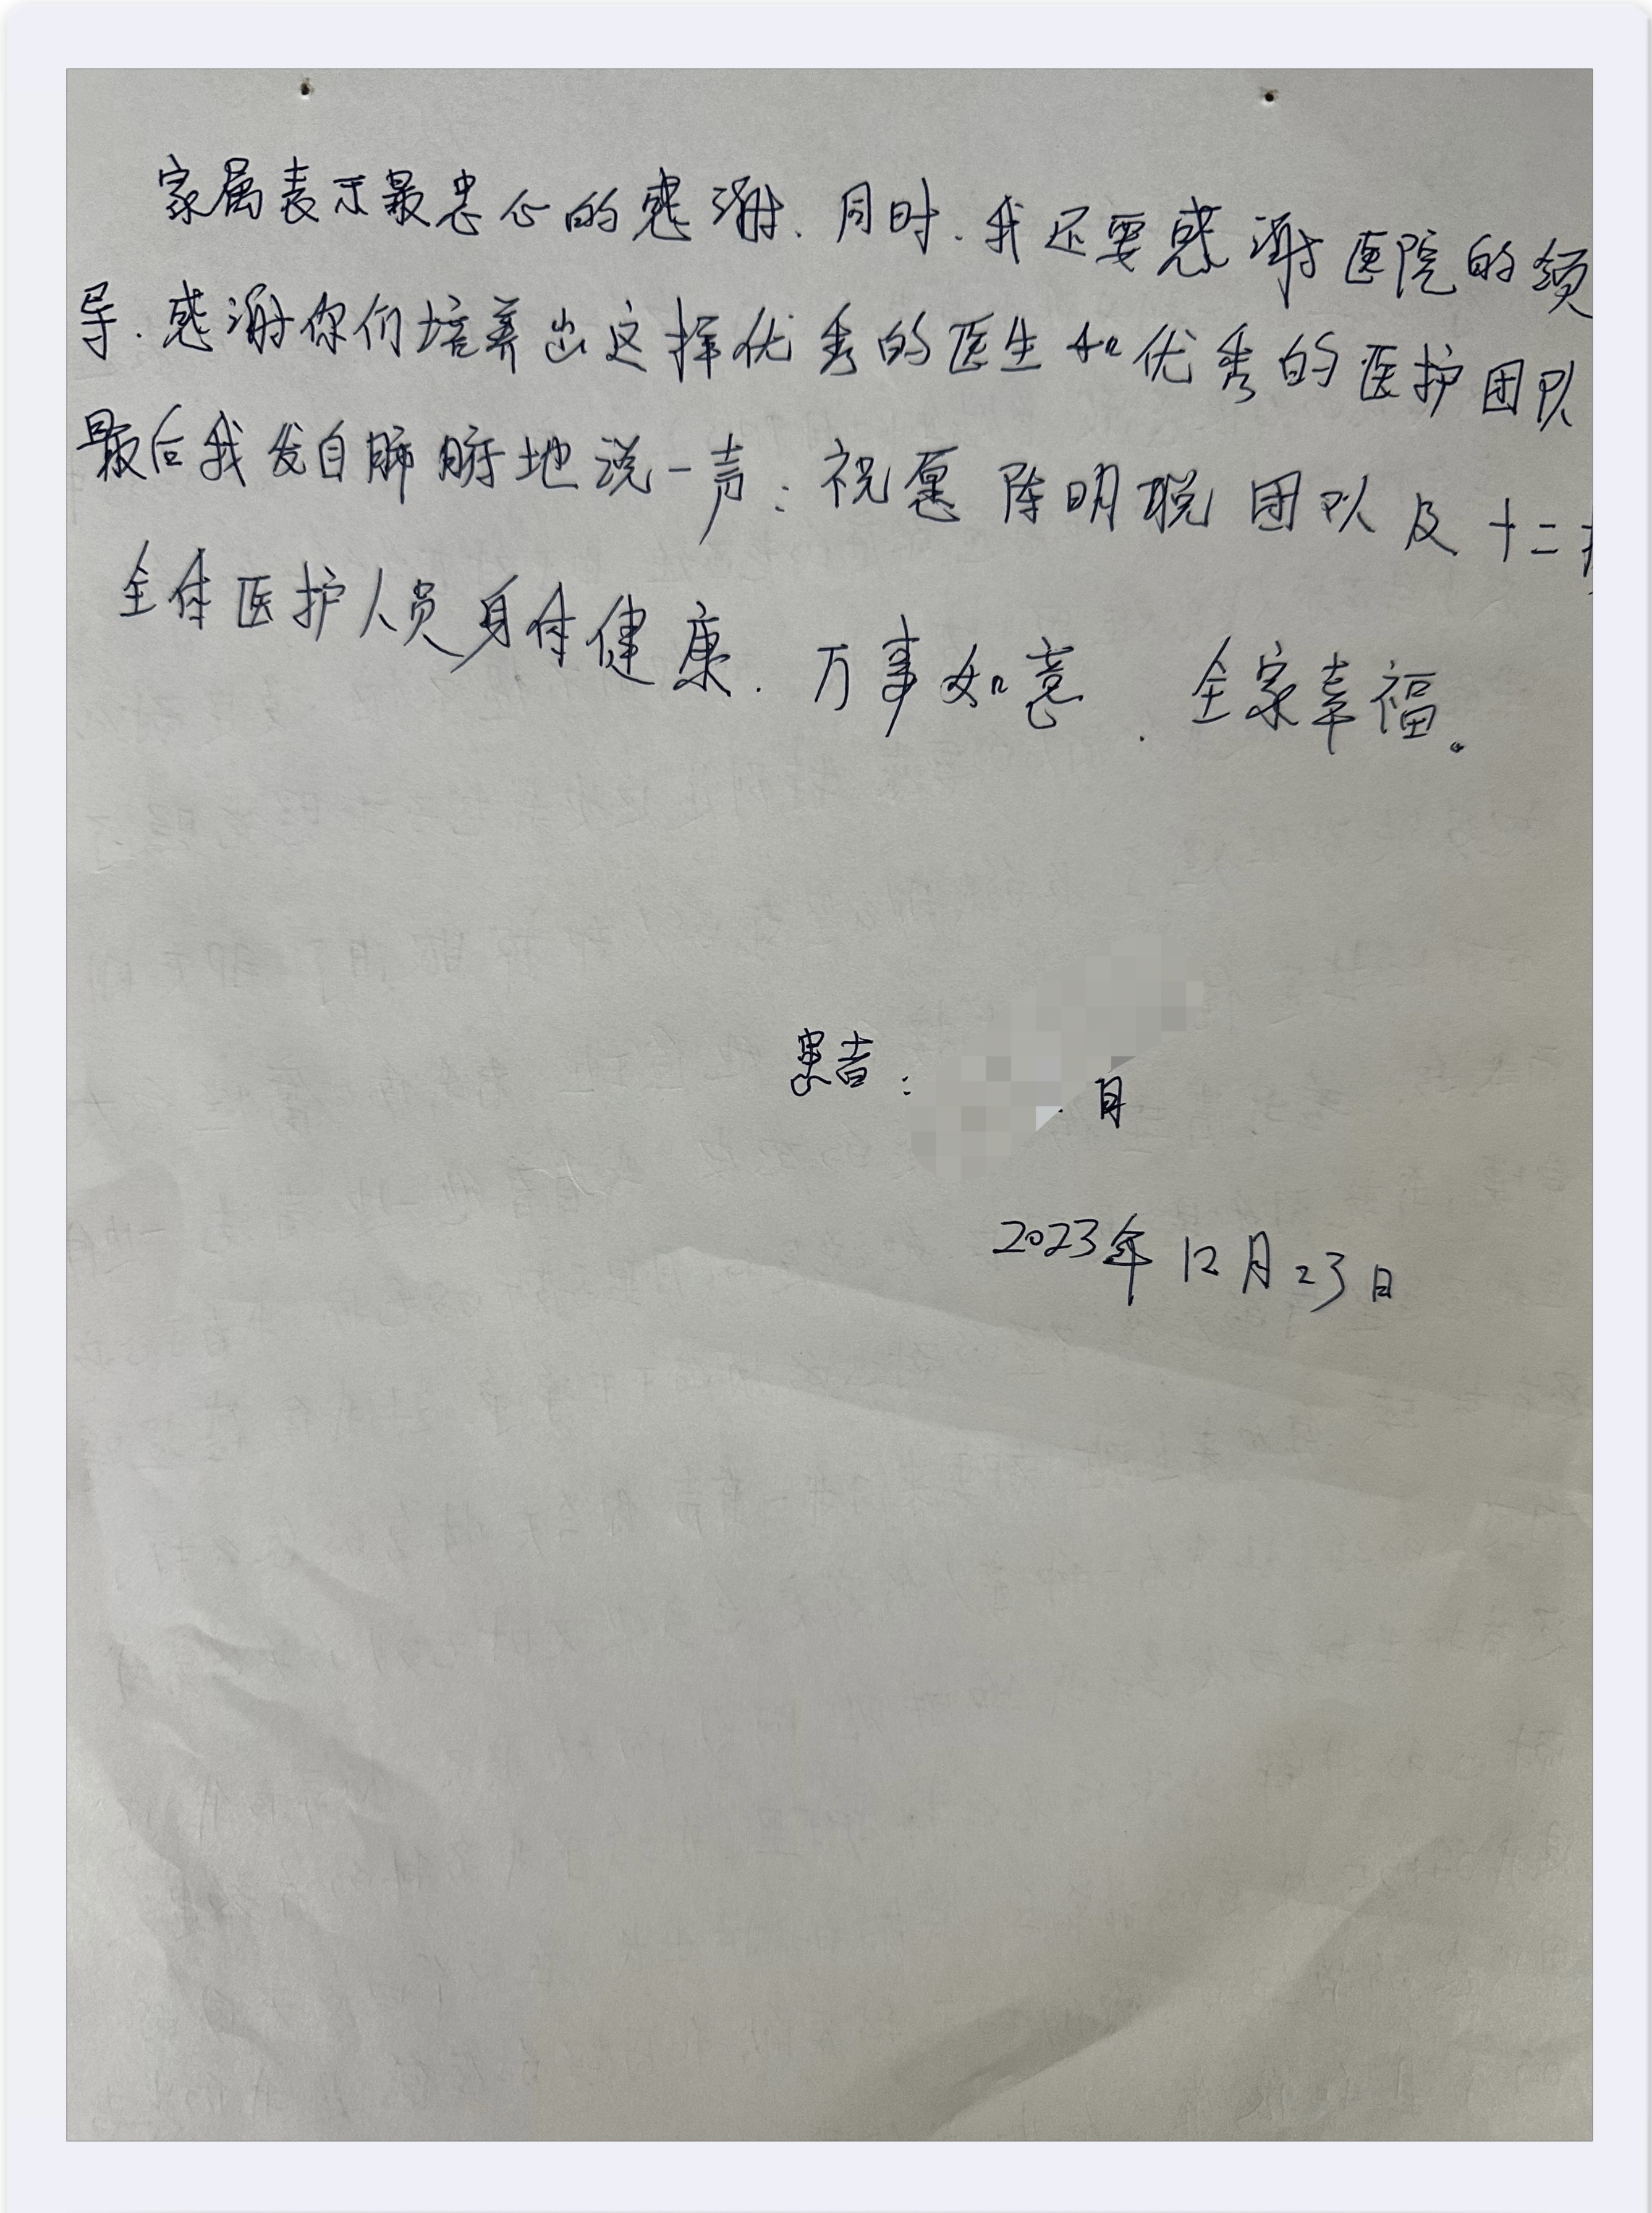 家属表示最忠心的感谢.同时.我还要感谢医院的领
导.感谢你们培养出这样优秀的医生和优秀的医护团队
最后我发自肺腑地说一声:祝愿陈明税团队及十二
全体医护人员身体健康.万事如意.全家幸福。
患者:
2023年12月23日